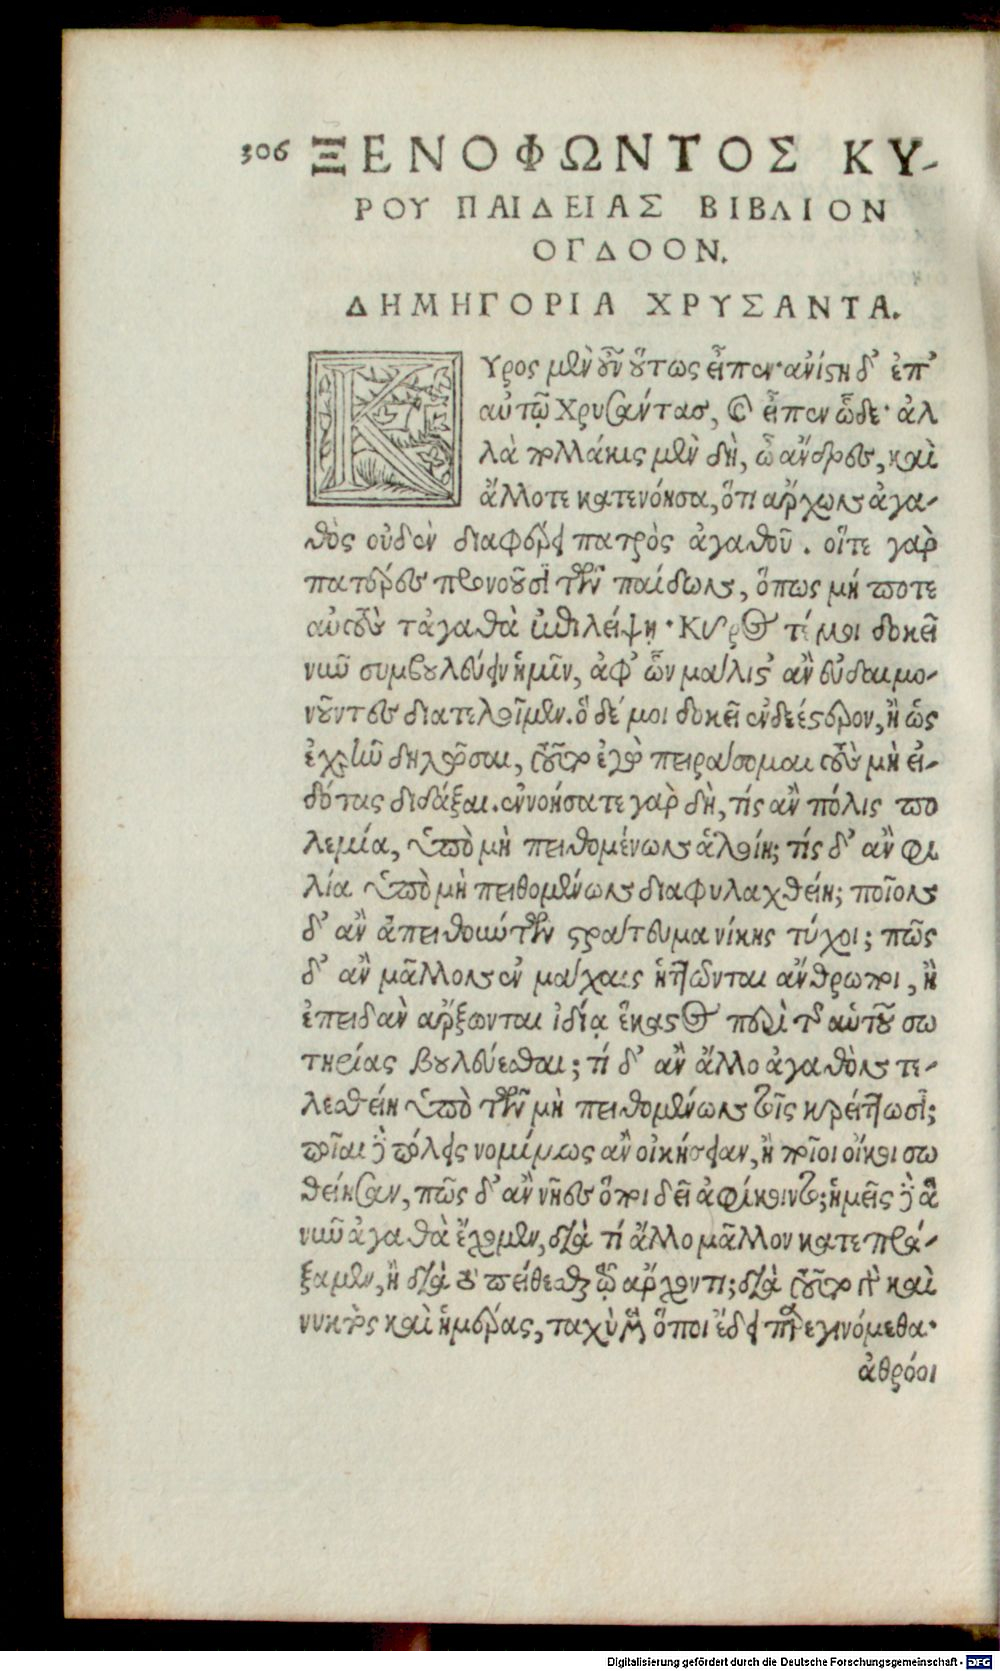 306 ΞΕΝΟΦΩΝΤΟΣ ΚΥ-
ΡΟΥ ΠΑΙΔΕΙΑΣ ΒΙΒΛΙΟΝ
ΟΓΔΟΟΝ.
ΔΗΜΗΓΟΡΙΑ ΧΡΥΣΑΝΤΑ.
Κῦρος μὲν οὖν οὕτως εἶπεν· ἀνίστη δ' ἐπ'
αὐτῷ Χρυσάντας, καὶ εἶπεν ὧδε· ἀλ
λὰ πολλάκις μὲν δὴ, ὦ ἄνδρες, καὶ
ἄλλοτε κατενόησα, ὅτι ἄρχων ἀγα-
θὸς οὐδὲν διαφέρει πατρὸς ἀγαθοῦ. οἵτε γὰρ
πατέρες προνοοῦσι τῶν παίδων, ὅπως μή ποτε
αὐτοὺς τἀγαθὰ ἐπιλείψῃ· Κῦρός τέ μοι δοκεῖ
νῦν συμβουλεύειν ἡμῖν, ἀφ' ὧν μάλιστ' ἂν εὐδαιμο-
νοῦντες διατελοῖμεν. ὃ δέ μοι δοκεῖ ἐνδεέστερον, ἢ ὡς
ἐχρῆν δηλῶσαι, τοῦτο ἐγὼ πειράσομαι τοὺς μὴ εἰ-
δότας διδάξαι. ἐννοήσατε γὰρ δὴ, τίς ἂν πόλις πο
λεμία, ὑπὸ μὴ πειθομένων ἁλοίη; τίς δ' ἂν φι
λία ὑπὸ μὴ πειθομένων διαφυλαχθείη; ποῖον
δ' ἂν ἀπειθούντων στράτευμα νίκης τύχοι; πῶς
δ' ἂν μᾶλλον ἐν μάχαις ἡττῶνται ἄνθρωποι, ἢ
ἐπειδὰν ἄρξωνται ἰδίᾳ ἕκαστος περὶ τῆς αὑτοῦ σω
τηρίας βουλεύεσθαι; τί δ' ἂν ἄλλο ἀγαθὸν τε-
λεσθείη ὑπὸ τῶν μὴ πειθομένων τοῖς κρείττωσι;
ποῖαι δὲ πόλεις νομίμως ἂν οἰκήσειαν, ἢ ποῖοι οἶκοι σω
θείησαν, πῶς δ' ἂν νῆες ὅποι δεῖ ἀφίκοιντο; ἡμεῖς δὲ ἃ
νῦν ἀγαθὰ ἔχομεν, διὰ τί ἄλλο μᾶλλον κατεπρά-
ξαμεν, ἢ διὰ τὸ πείθεσθαι τῷ ἄρχοντι; διὰ τοῦτο γὰρ καὶ
νυκτὸς καὶ ἡμέρας, ταχὺ μὲν ὅποι ἔδει παρεγινόμεθα·
ἀθρόοι
Digitalisierung gefördert durch die Deutsche Forschungsgemeinschaft - DFG